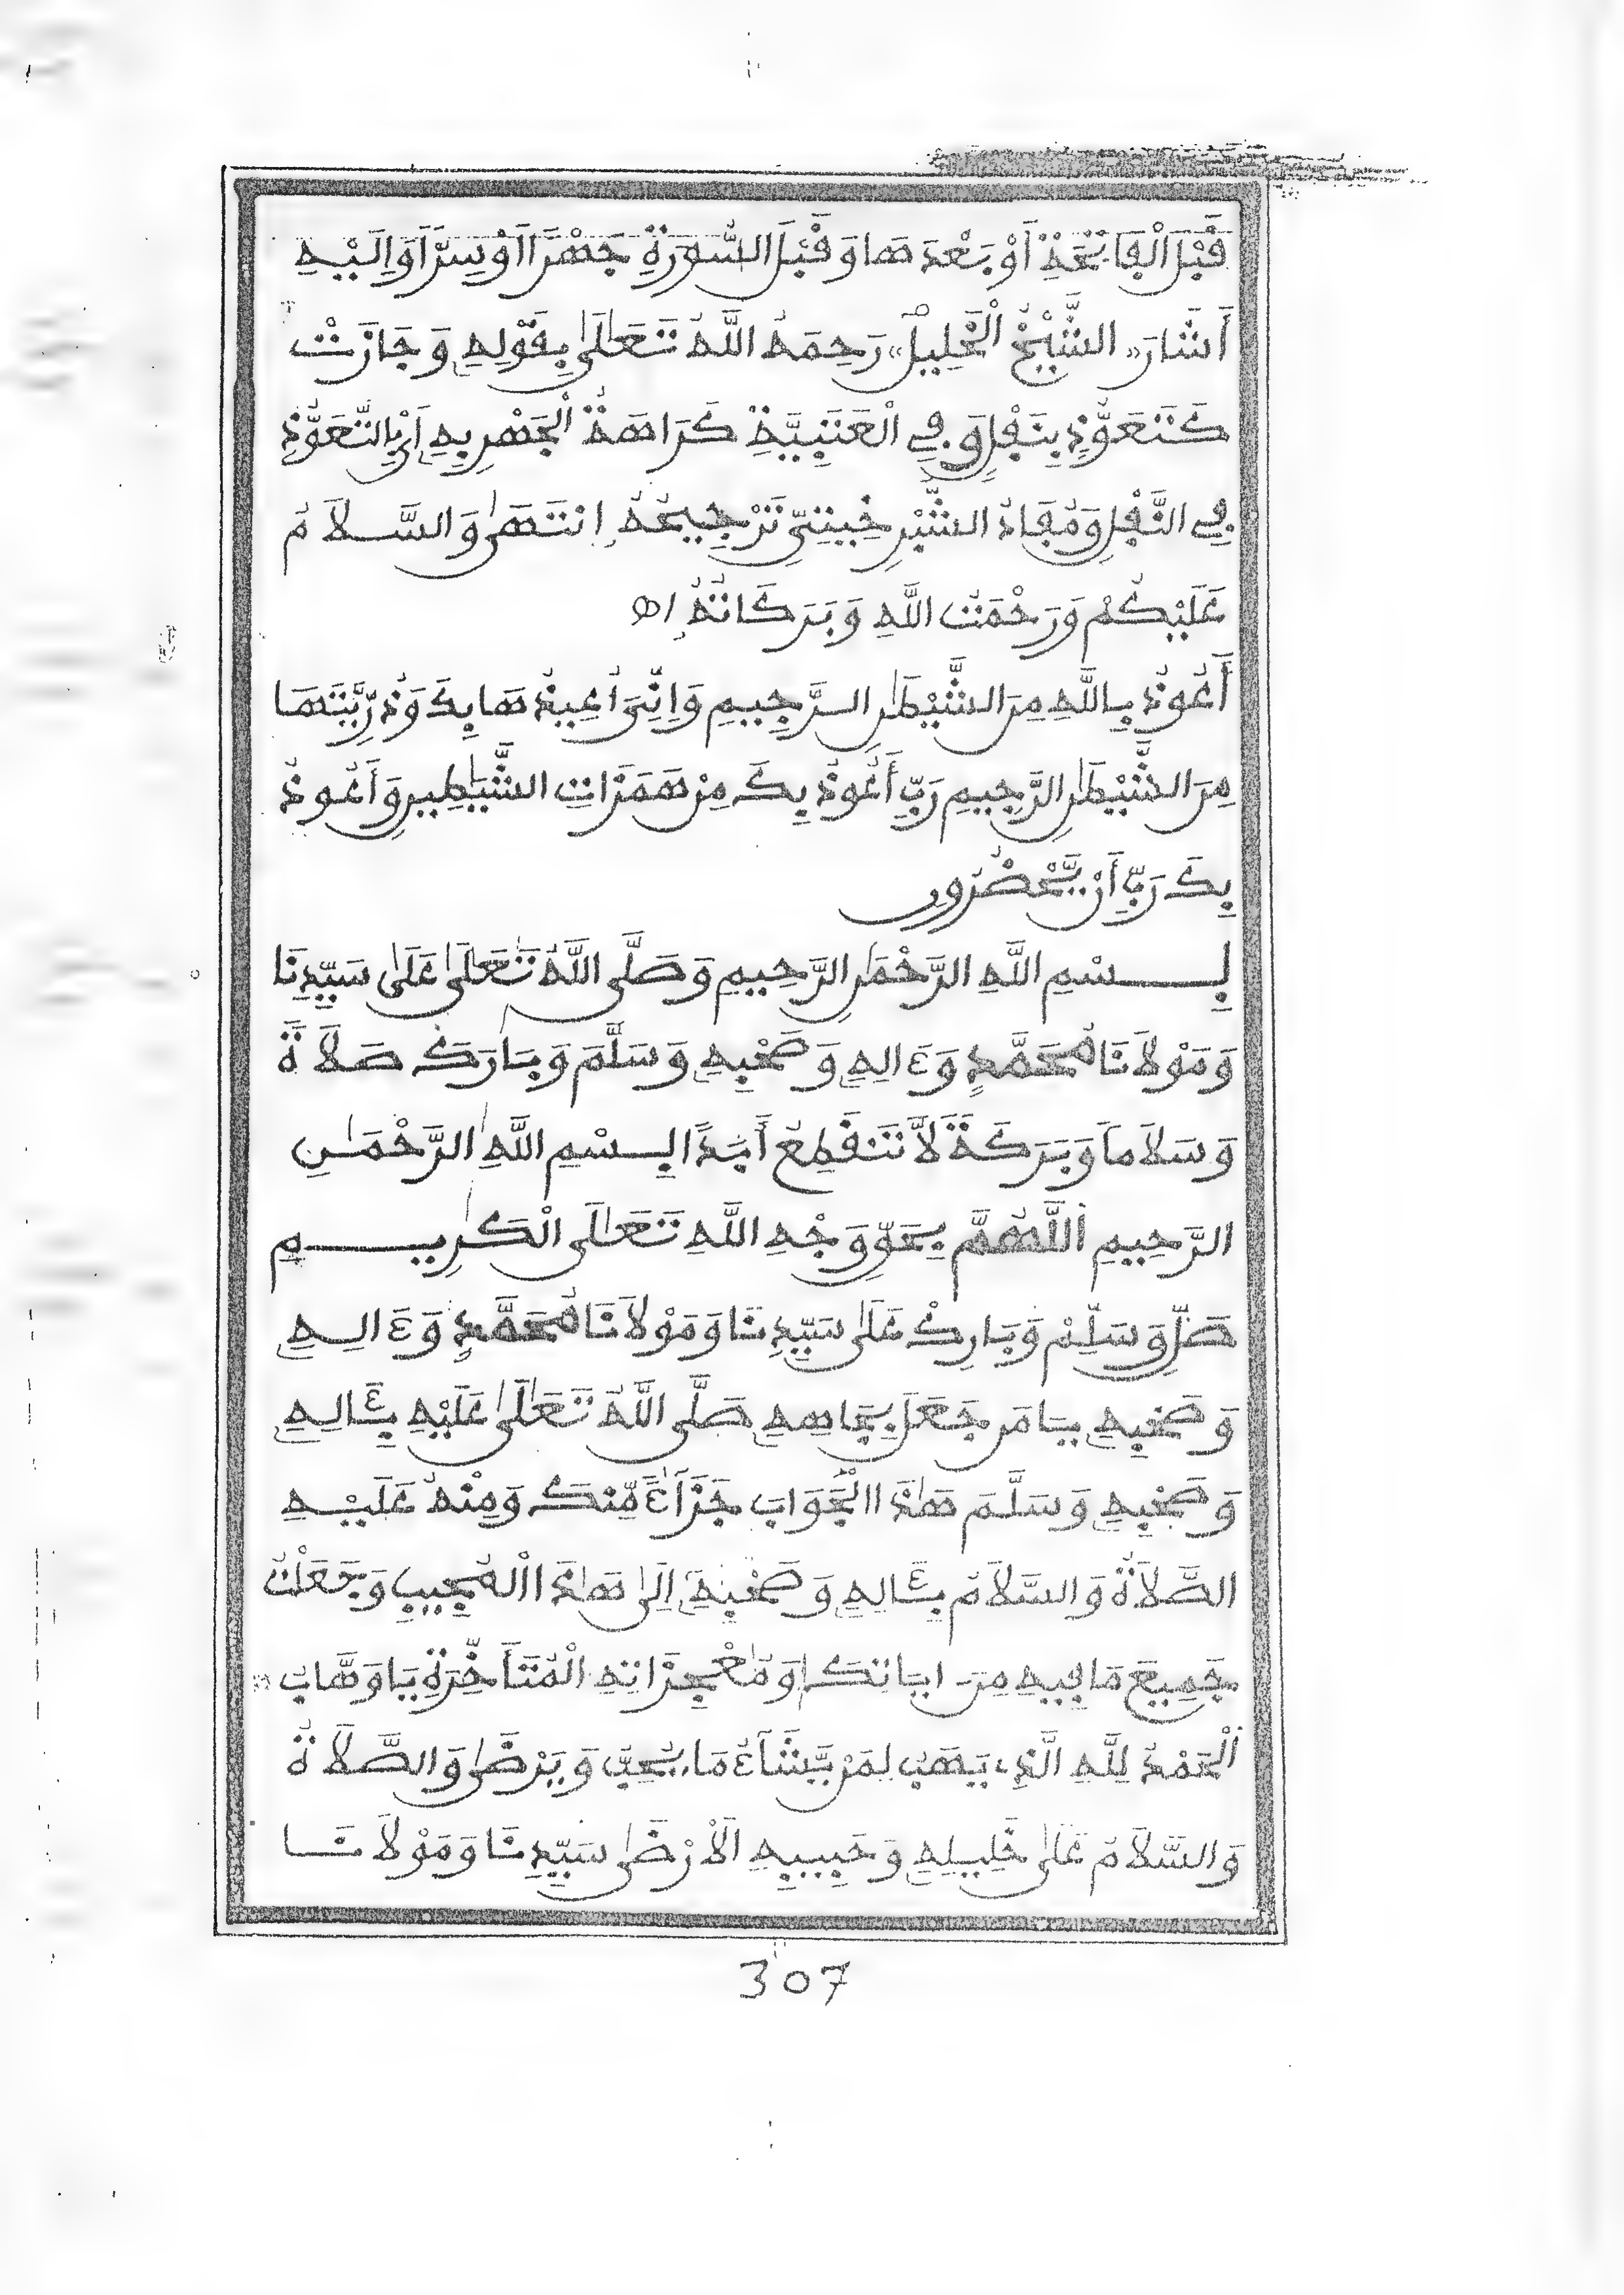 قَبْلَ الْفَاتِحَةِ أَوْ بَعْدَهَا وَقَبْلَ السُّورَةِ جَهْرًا اَوْ سِرًّا وَإِلَيْهِ
أَشَارَ «الشَّيْخُ الْخَلِيلْ» رَحِمَهُ اللَّهُ تَعَالَى بِقَوْلِهِ وَجَازَتْ
كَتَعَوُّذٍ بِنَفْلٍ وَفِي الْعُتْبِيَّةِ كَرَاهَةُ الْجَهْرِ بِهِ أَيْ بِالتَّعَوُّذِ
فِي النَّفْلِ وَمُفَادُ الشَّبْرَخِيتِيِّ تَرْجِيحُهُ إِنْتَهَى وَالسَّلَامُ
عَلَيْكُمْ وَرَحْمَتُ اللَّهِ وَبَرَكَاتُهُ اهـ
أَعُوذُ بِاللَّهِ مِنَ الشَّيْطَٰنِ الرَّجِيمِ وَإِنِّيَ أُعِيذُهَا بِكَ وَذُرِّيَّتَهَا
مِنَ الشَّيْطَٰنِ الرَّجِيمِ رَبِّ أَعُوذُ بِكَ مِنْ هَمَزَاتِ الشَّيَٰطِينِ وَأَعُوذُ
بِكَ رَبِّ أَنْ يَّحْضُرُونِ
بِسْمِ اللَّهِ الرَّحْمَٰنِ الرَّحِيمِ وَصَلَّى اللَّهُ تَعَالَى عَلَى سَيِّدِنَا
وَمَوْلَانَا مُحَمَّدٍ وَءَالِهِ وَصَحْبِهِ وَسَلَّمَ وَبَارَكَ صَلَاةً
وَسَلَامًا وَبَرَكَةً لَّا تَنْقَطِعُ أَبَدًا بِسْمِ اللَّهِ الرَّحْمَٰنِ
الرَّحِيمِ اللَّهُمَّ بِحَقِّ وَجْهِ اللَّهِ تَعَالَى الْكَرِيمِ
صَلِّ وَسَلِّمْ وَبَارِكْ عَلَى سَيِّدِنَا وَمَوْلَانَا مُحَمَّدٍ وَءَالِهِ
وَصَحْبِهِ يَا مَن جَعَلَ بِجَاهِهِ صَلَّى اللَّهُ تَعَالَى عَلَيْهِ بِـَٔالِهِ
وَصَحْبِهِ وَسَلَّمَ هَٰذَا الْجَوَابَ جَزَآءً مِّنكَ وَمِنْهُ عَلَيْهِ
الصَّلَاةُ وَالسَّلَامُ بِـَٔالِهِ وَصَحْبِهِ إِلَى هَٰذَا الْمُجِيبِ وَجَعَلْتَ
جَمِيعَ مَا فِيهِ مِنَ ايَاتِكَ وَمُعْجِزَاتِهِ الْمُتَأَخِّرَةِ يَا وَهَّابُ
الْحَمْدُ لِلَّهِ الَّذِي يَهَبُ لِمَنْ يَّشَآءُ مَا يُحِبُّ وَيَرْضَى وَالصَّلَاةُ
وَالسَّلَامُ عَلَى خَلِيلِهِ وَحَبِيبِهِ الْأَرْضَى سَيِّدِنَا وَمَوْلَانَا
307